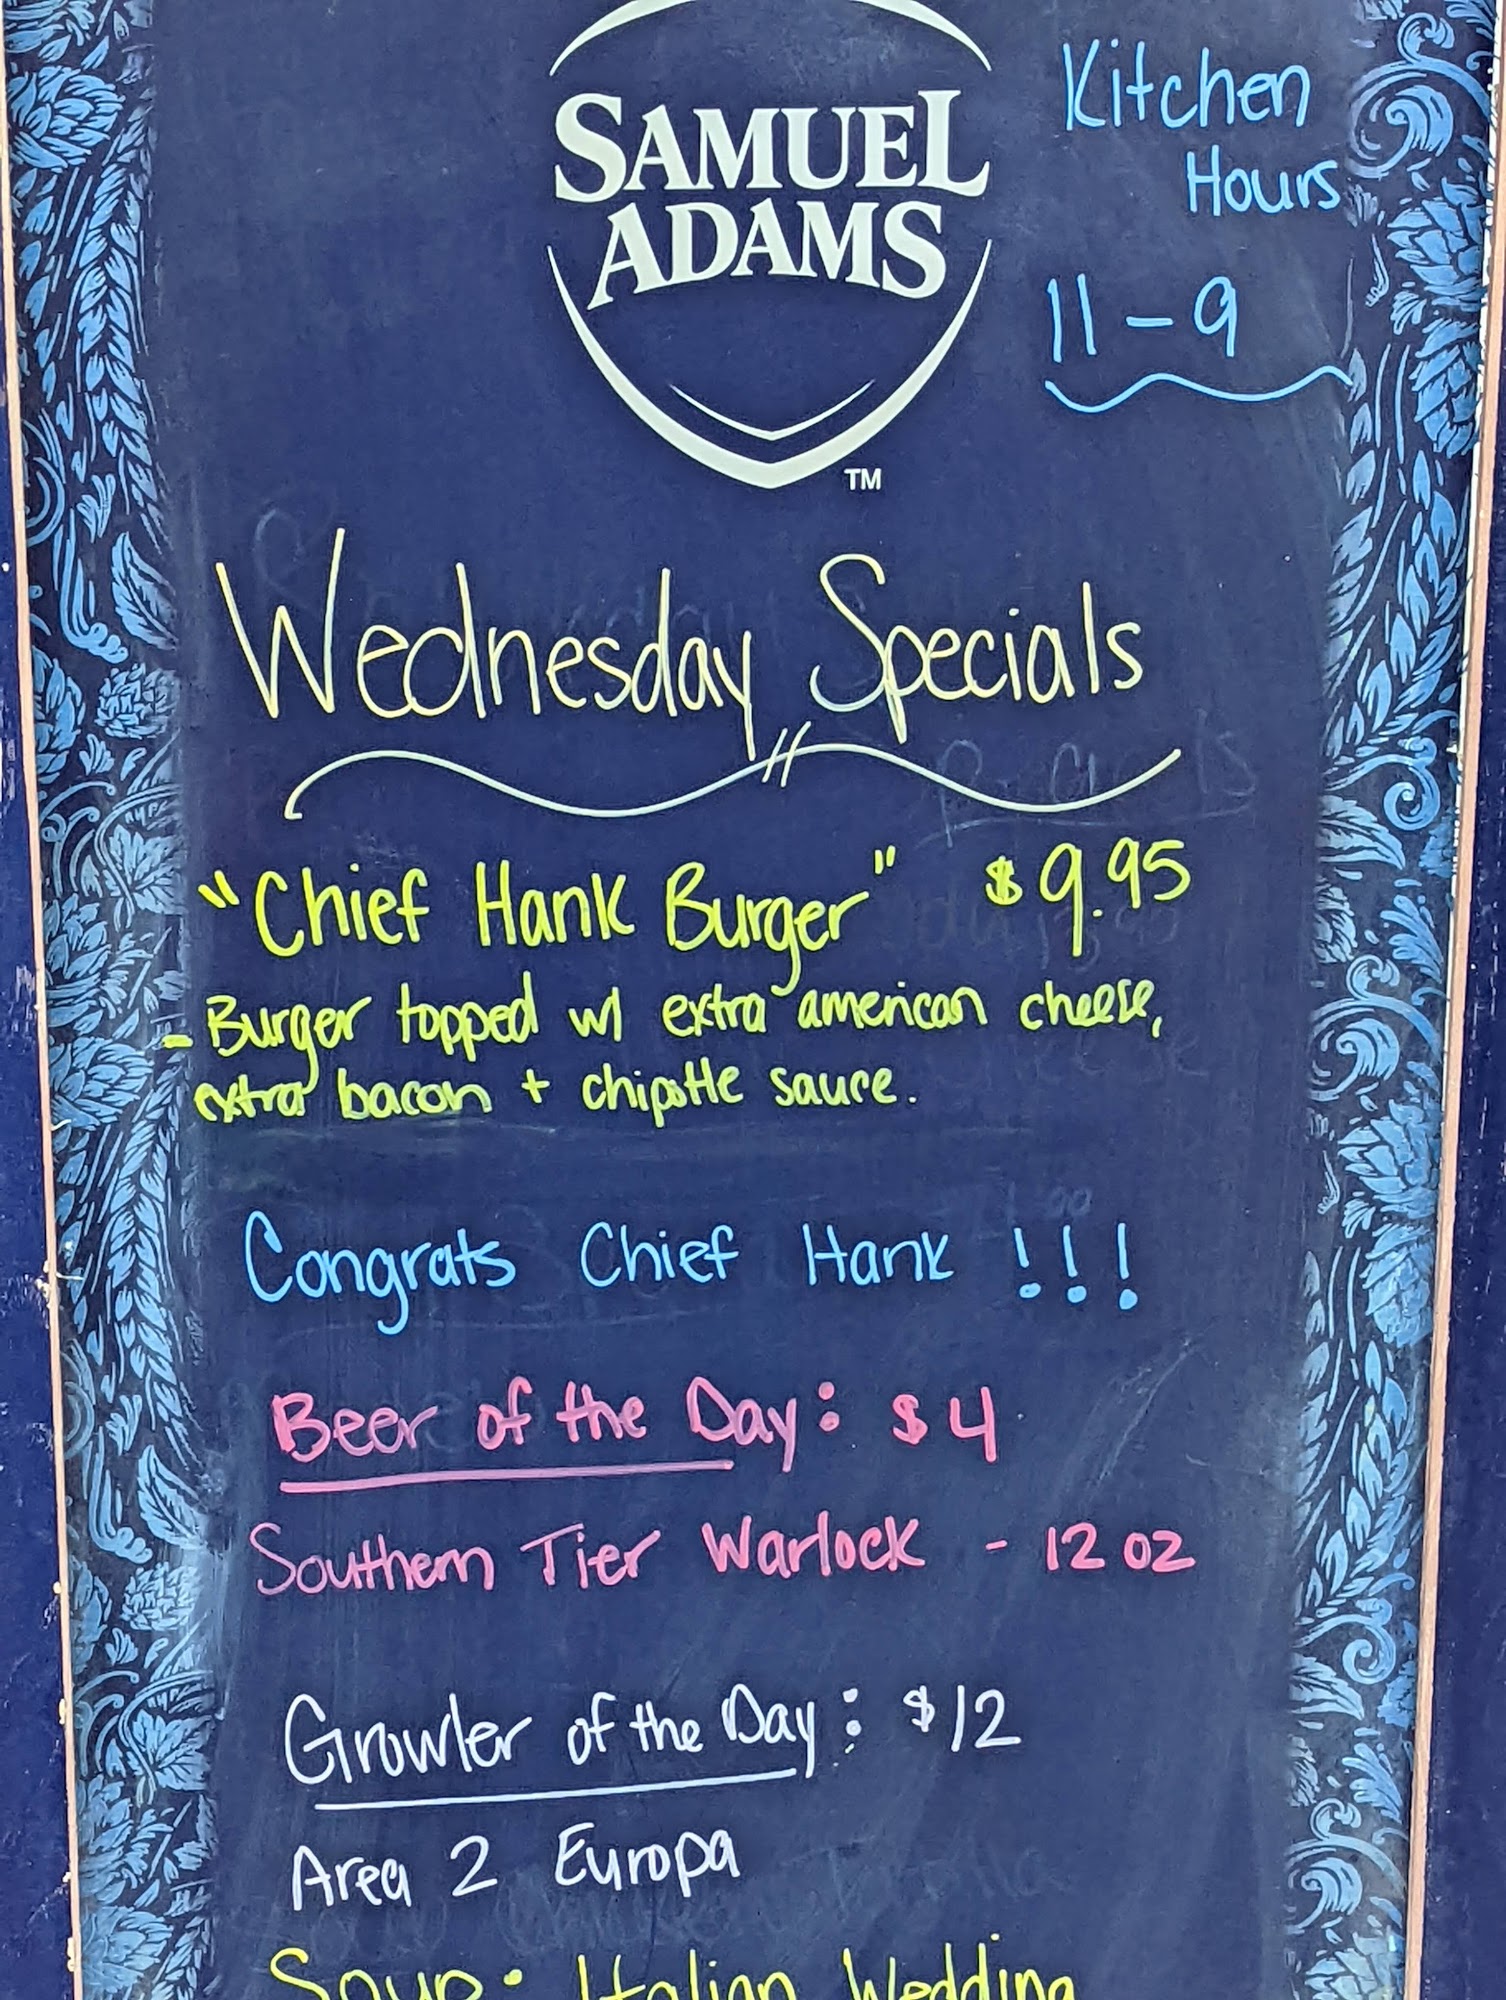 SAMUEL
ADAMS
TM
Kitchen
Hours
11-9
Wednesday Specials
"Chief Hank Burger" $9.95
- Burger topped w/ extra american cheese,
extra bacon + chipotle sauce.
Congrats Chief Hank !!!
Beer of the Day: $4
Southern Tier Warlock - 12 oz
Growler of the Day: $12
Area 2 Europa
Soup: Italian Wedding